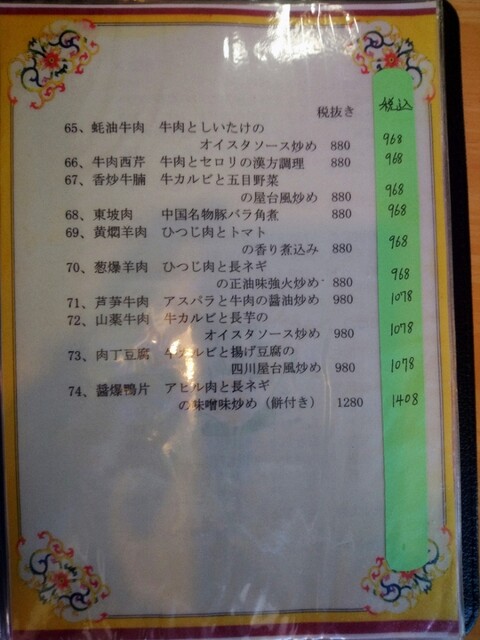 税抜き 税込
65、蚝油牛肉 牛肉としいたけの
オイスタソース炒め 880 968
66、牛肉西芹 牛肉とセロリの漢方調理 880 968
67、香炒牛腩 牛カルビと五目野菜
の屋台風炒め 880 968
68、東坡肉 中国名物豚バラ角煮 880 968
69、黄燜羊肉 ひつじ肉とトマト
の香り煮込み 880 968
70、葱爆羊肉 ひつじ肉と長ネギ
の正油味強火炒め 880 968
71、芦笋牛肉 アスパラと牛肉の醤油炒め 980 1078
72、山薬牛肉 牛カルビと長芋の
オイスタソース炒め 980 1078
73、肉丁豆腐 牛カルビと揚げ豆腐の
四川屋台風炒め 980 1078
74、醤爆鴨片 アヒル肉と長ネギ
の味噌味炒め（餅付き） 1280 1408